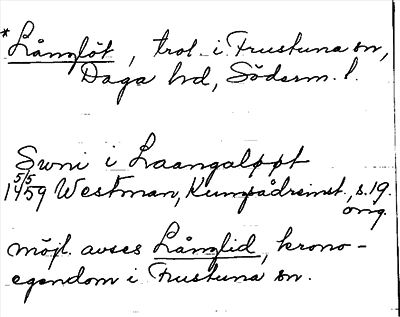 *Långlöt, trol. i Frustuna sn,
Daga hd, Söderm. l.
Swni i Laangaløpt
5/5 1459 Westman, Kungsådreinst., s. 19.
orig.
möjl. avses Långlid, krono-
egendom i Frustuna sn.